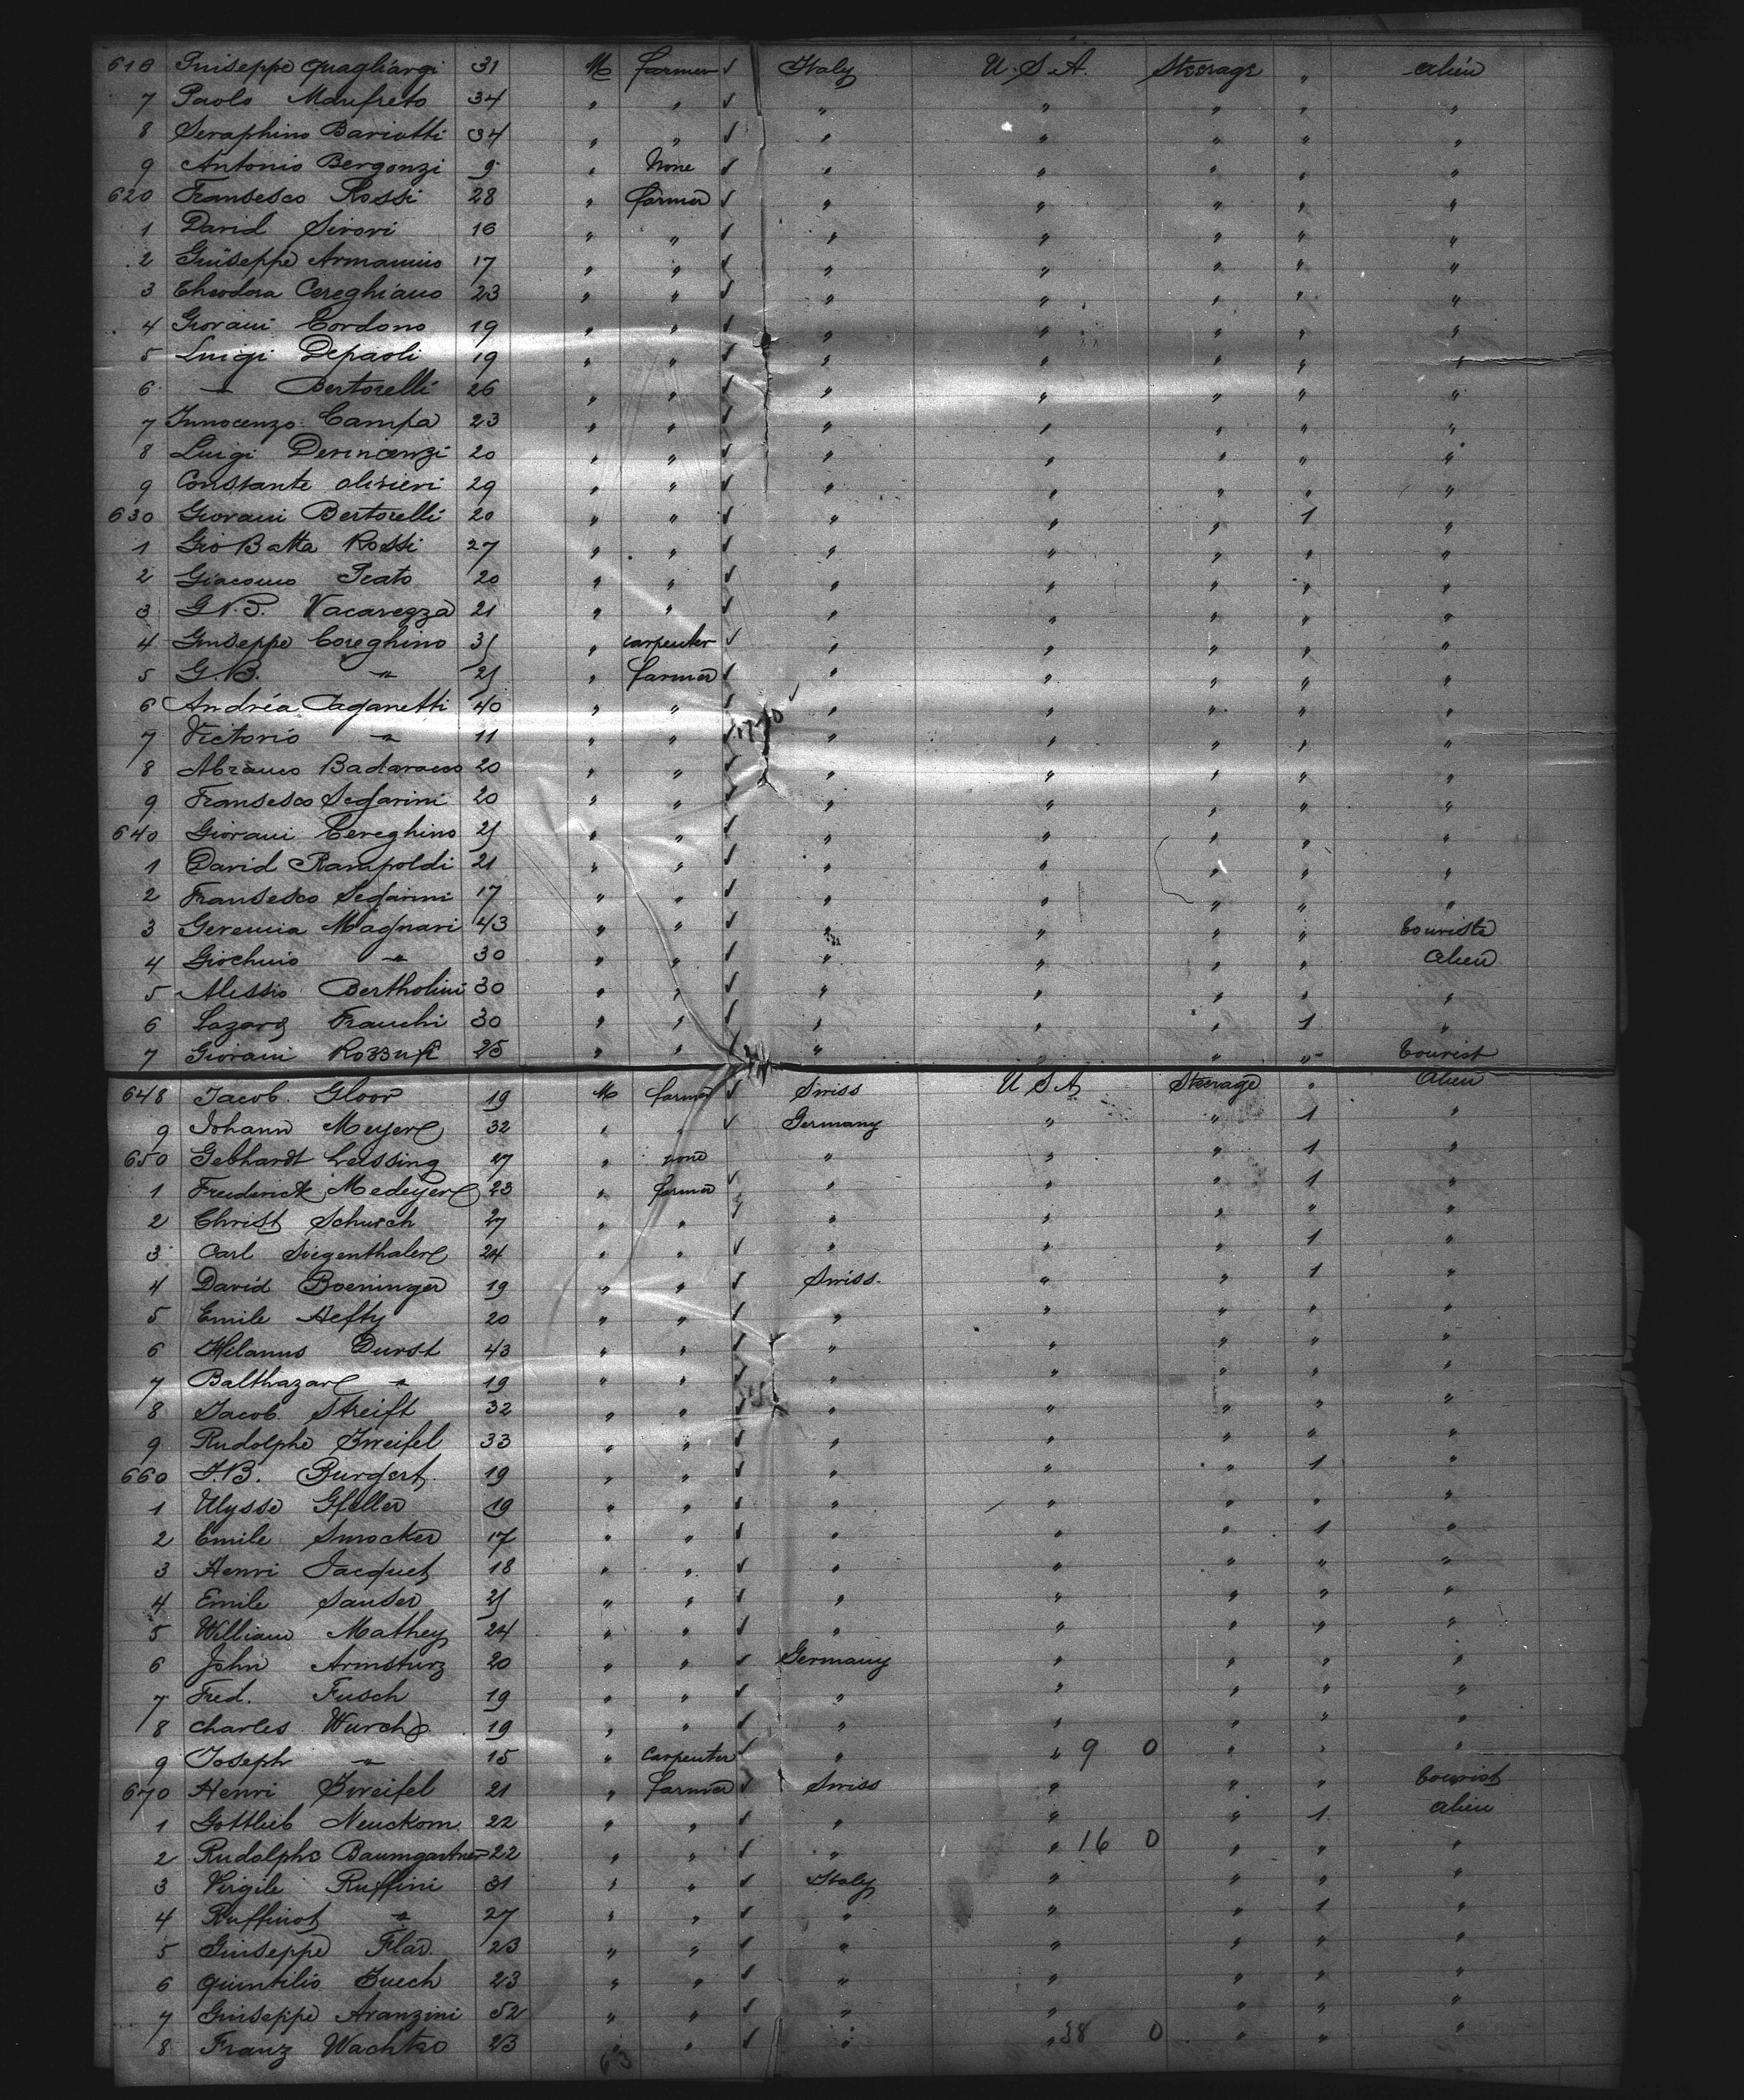 616 Guiseppe Quagliargi 31 M farmer ✓ Italy U.S.A. Steerage " alien
7 Paolo Manfreto 34 " " ✓ " " " " "
8 Seraphino Bariotti 34 " " ✓ " " " " "
9 Antonio Bergonzi 9 " None ✓ " " " " "
620 Fransesco Rossi 28 " farmer ✓ " " " " "
1 David Sirovi 16 " " ✓ " " " " "
2 Guiseppe Armanino 17 " " ✓ " " " " "
3 Theodora Cereghiano 23 " " ✓ " " " " "
4 Giovani Cordono 19 " " ✓ " " " " "
5 Luigi Depaoli 19 " " ✓ " " " " "
6 " Bertorelli 26 " " ✓ " " " " "
7 Innocenzo Campa 23 " " ✓ " " " " "
8 Luigi Devincenzi 20 " " ✓ " " " " "
9 Constante olivieri 29 " " ✓ " " " " "
630 Giovani Bertorelli 20 " " ✓ " " " 1 "
1 Gio Batta Rossi 27 " " ✓ " " " " "
2 Giacomo Prato 20 " " ✓ " " " " "
3 G.B. Vacarezza 21 " " ✓ " " " " "
4 Guiseppe Coreghino 31 " carpenter ✓ " " " " "
5 G.B. " 21 " farmer ✓ " " " " "
6 Andréa Paganetti 40 " " ✓ " " " " "
7 Victorio " 11 " " ✓ " " " " "
8 Abramo Badaracco 20 " " ✓ " " " " "
9 Fransesco Segarini 20 " " ✓ " " " " "
640 Giovani Cereghino 21 " " ✓ " " " " "
1 David Rampoldi 21 " " ✓ " " " " "
2 Fransesco Segarini 17 " " ✓ " " " " "
3 Geremia Magnavi 43 " " ✓ " " " " touriste
4 Giochino " 30 " " ✓ " " " " alien
5 Alessio Bertholini 30 " " ✓ " " " " "
6 Lazaro Franchi 30 " " ✓ " " " 1 "
7 Giovani 25 " " ✓ " " " " tourist
648 Jacob Gloor 19 M farmer ✓ Swiss U S A Steerage " alien
9 Johann Meyer 32 " " ✓ Germany " " 1 "
650 Gebhardt Leissing 27 " none " " " 1 "
1 Frederick Medeyer 23 " farmer ✓ " " " 1 "
2 Christ Schurch 27 " " ✓ " " " " "
3 Carl Siegenthaler 24 " " ✓ " " " 1 "
4 David Boeninger 19 " " ✓ Swiss " " 1 "
5 Emile Hefty 20 " " ✓ " " " " "
6 Hilanus Durst 43 " " ✓ " " " " "
7 Balthazar " 19 " " ✓ " " " " "
8 Jacob Streift 32 " " ✓ " " " " "
9 Rudolphe Zweifel 33 " " ✓ " " " " "
660 J.B. Burgert 19 " " ✓ " " " 1 "
1 Ulysse Gfeller 19 " " ✓ " " " " "
2 Emile Smocker 17 " " ✓ " " " 1 "
3 Henri Jacquet 18 " " ✓ " " " " "
4 Emile Sauser 21 " " ✓ " " " " "
5 William Mathey 24 " " ✓ " " " " "
6 John Armsturz 20 " " ✓ Germany " " " "
7 Fred. Fusch 19 " " ✓ " " " " "
8 Charles Wurch 19 " " ✓ " " " " "
9 Joseph " 15 " Carpenter ✓ " " 9 0 " " "
670 Henri Zweifel 21 " farmer ✓ Swiss " " " tourist
1 Gottlieb Neuckom 22 " " ✓ " " " 1 alien
2 Rudolphe Baumgartner 22 " " ✓ " " 16 0 " " "
3 Virgile Ruffini 31 " " ✓ Italy " " " "
4 Ruffinot " 27 " " ✓ " " " 1 "
5 Guiseppe Flar 23 " " ✓ " " " " "
6 Quintilio Zuech 23 " " ✓ " " " " "
7 Guiseppe Aranzini 52 " " ✓ " " " " "
8 Franz Wachtro 23 " ✓ " " 38 0 " " "
63